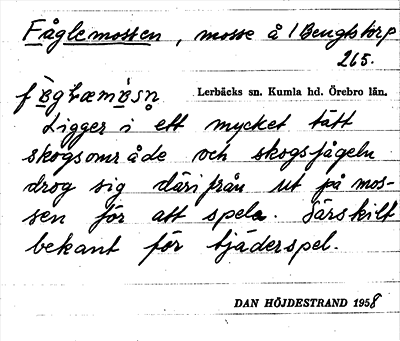 Fåglemossen, mosse å 1 Bengtstorp
265.
Lerbäcks sn. Kumla hd. Örebro län.
Ligger i ett mycket tätt
skogsområde och skogsfågeln
drog sig därifrån ut på mos-
sen för att spela. Särskilt
bekant för tjäderspel.
DAN HÖJDESTRAND 1958